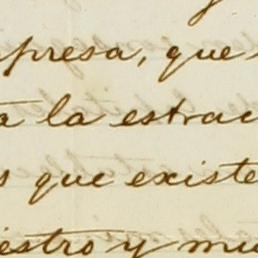 presa, que
a la estrac
s que existe
iestro y mu